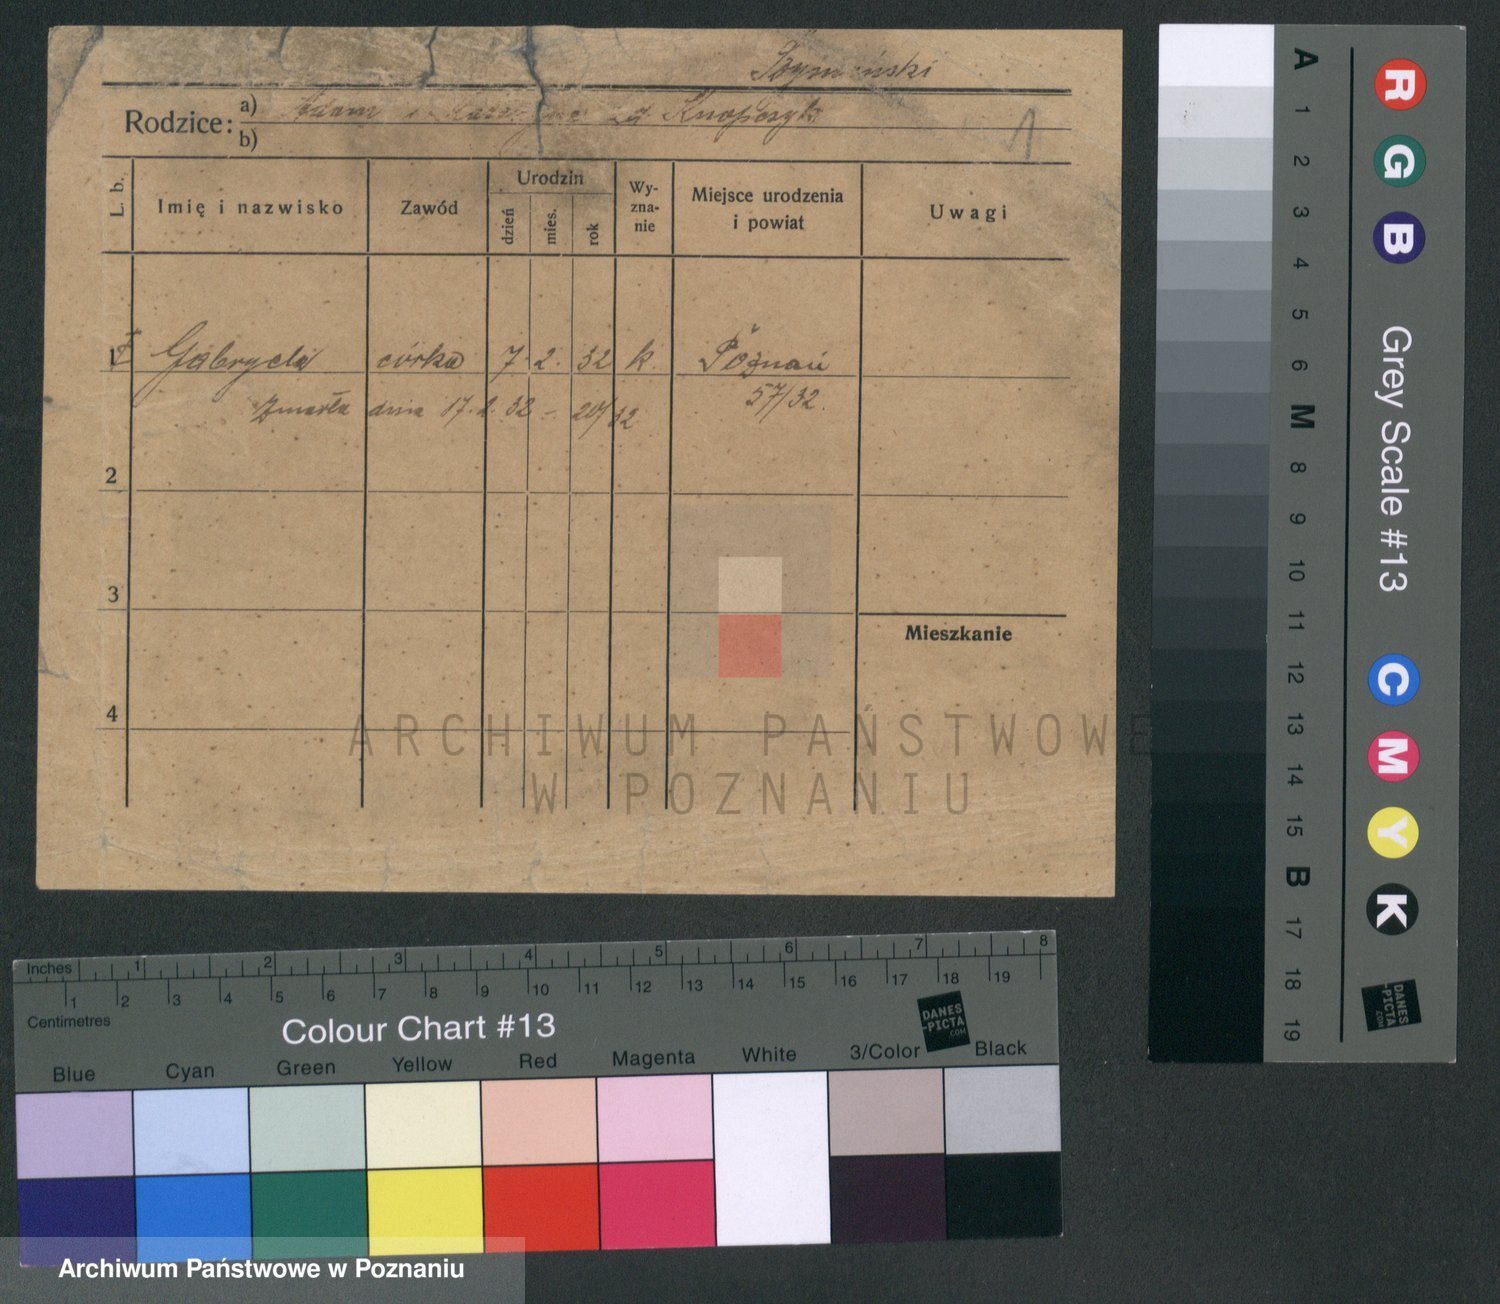 Szymański
Rodzice: a) Adam i Katarzyna zd Knapczyk
b)
L. b.
Imię i nazwisko
Zawód
Urodzin
dzień
mies.
rok
Wy-
zna-
nie
Miejsce urodzenia
i powiat
Uwagi
1 Gabryela córka 7. 2. 32 k. Poznań
57/32.
Zmarła dnia 17. 2. 32 –
2
3
4
Mieszkanie
ARCHIWUM PAŃSTWOWE
W POZNANIU
A 1 2 3 4 5 6 M 8 9 10 11 12 13 14 15 B 17 18 19
R G B Grey Scale #13 C M Y K
DANES
-PICTA
.COM
Inches 1 2 3 4 5 6 7 8
1 2 3 4 5 6 7 8 9 10 11 12 13 14 15 16 17 18 19
Centimetres
Colour Chart #13
DANES
-PICTA
.COM
Blue Cyan Green Yellow Red Magenta White 3/Color Black
Archiwum Państwowe w Poznaniu